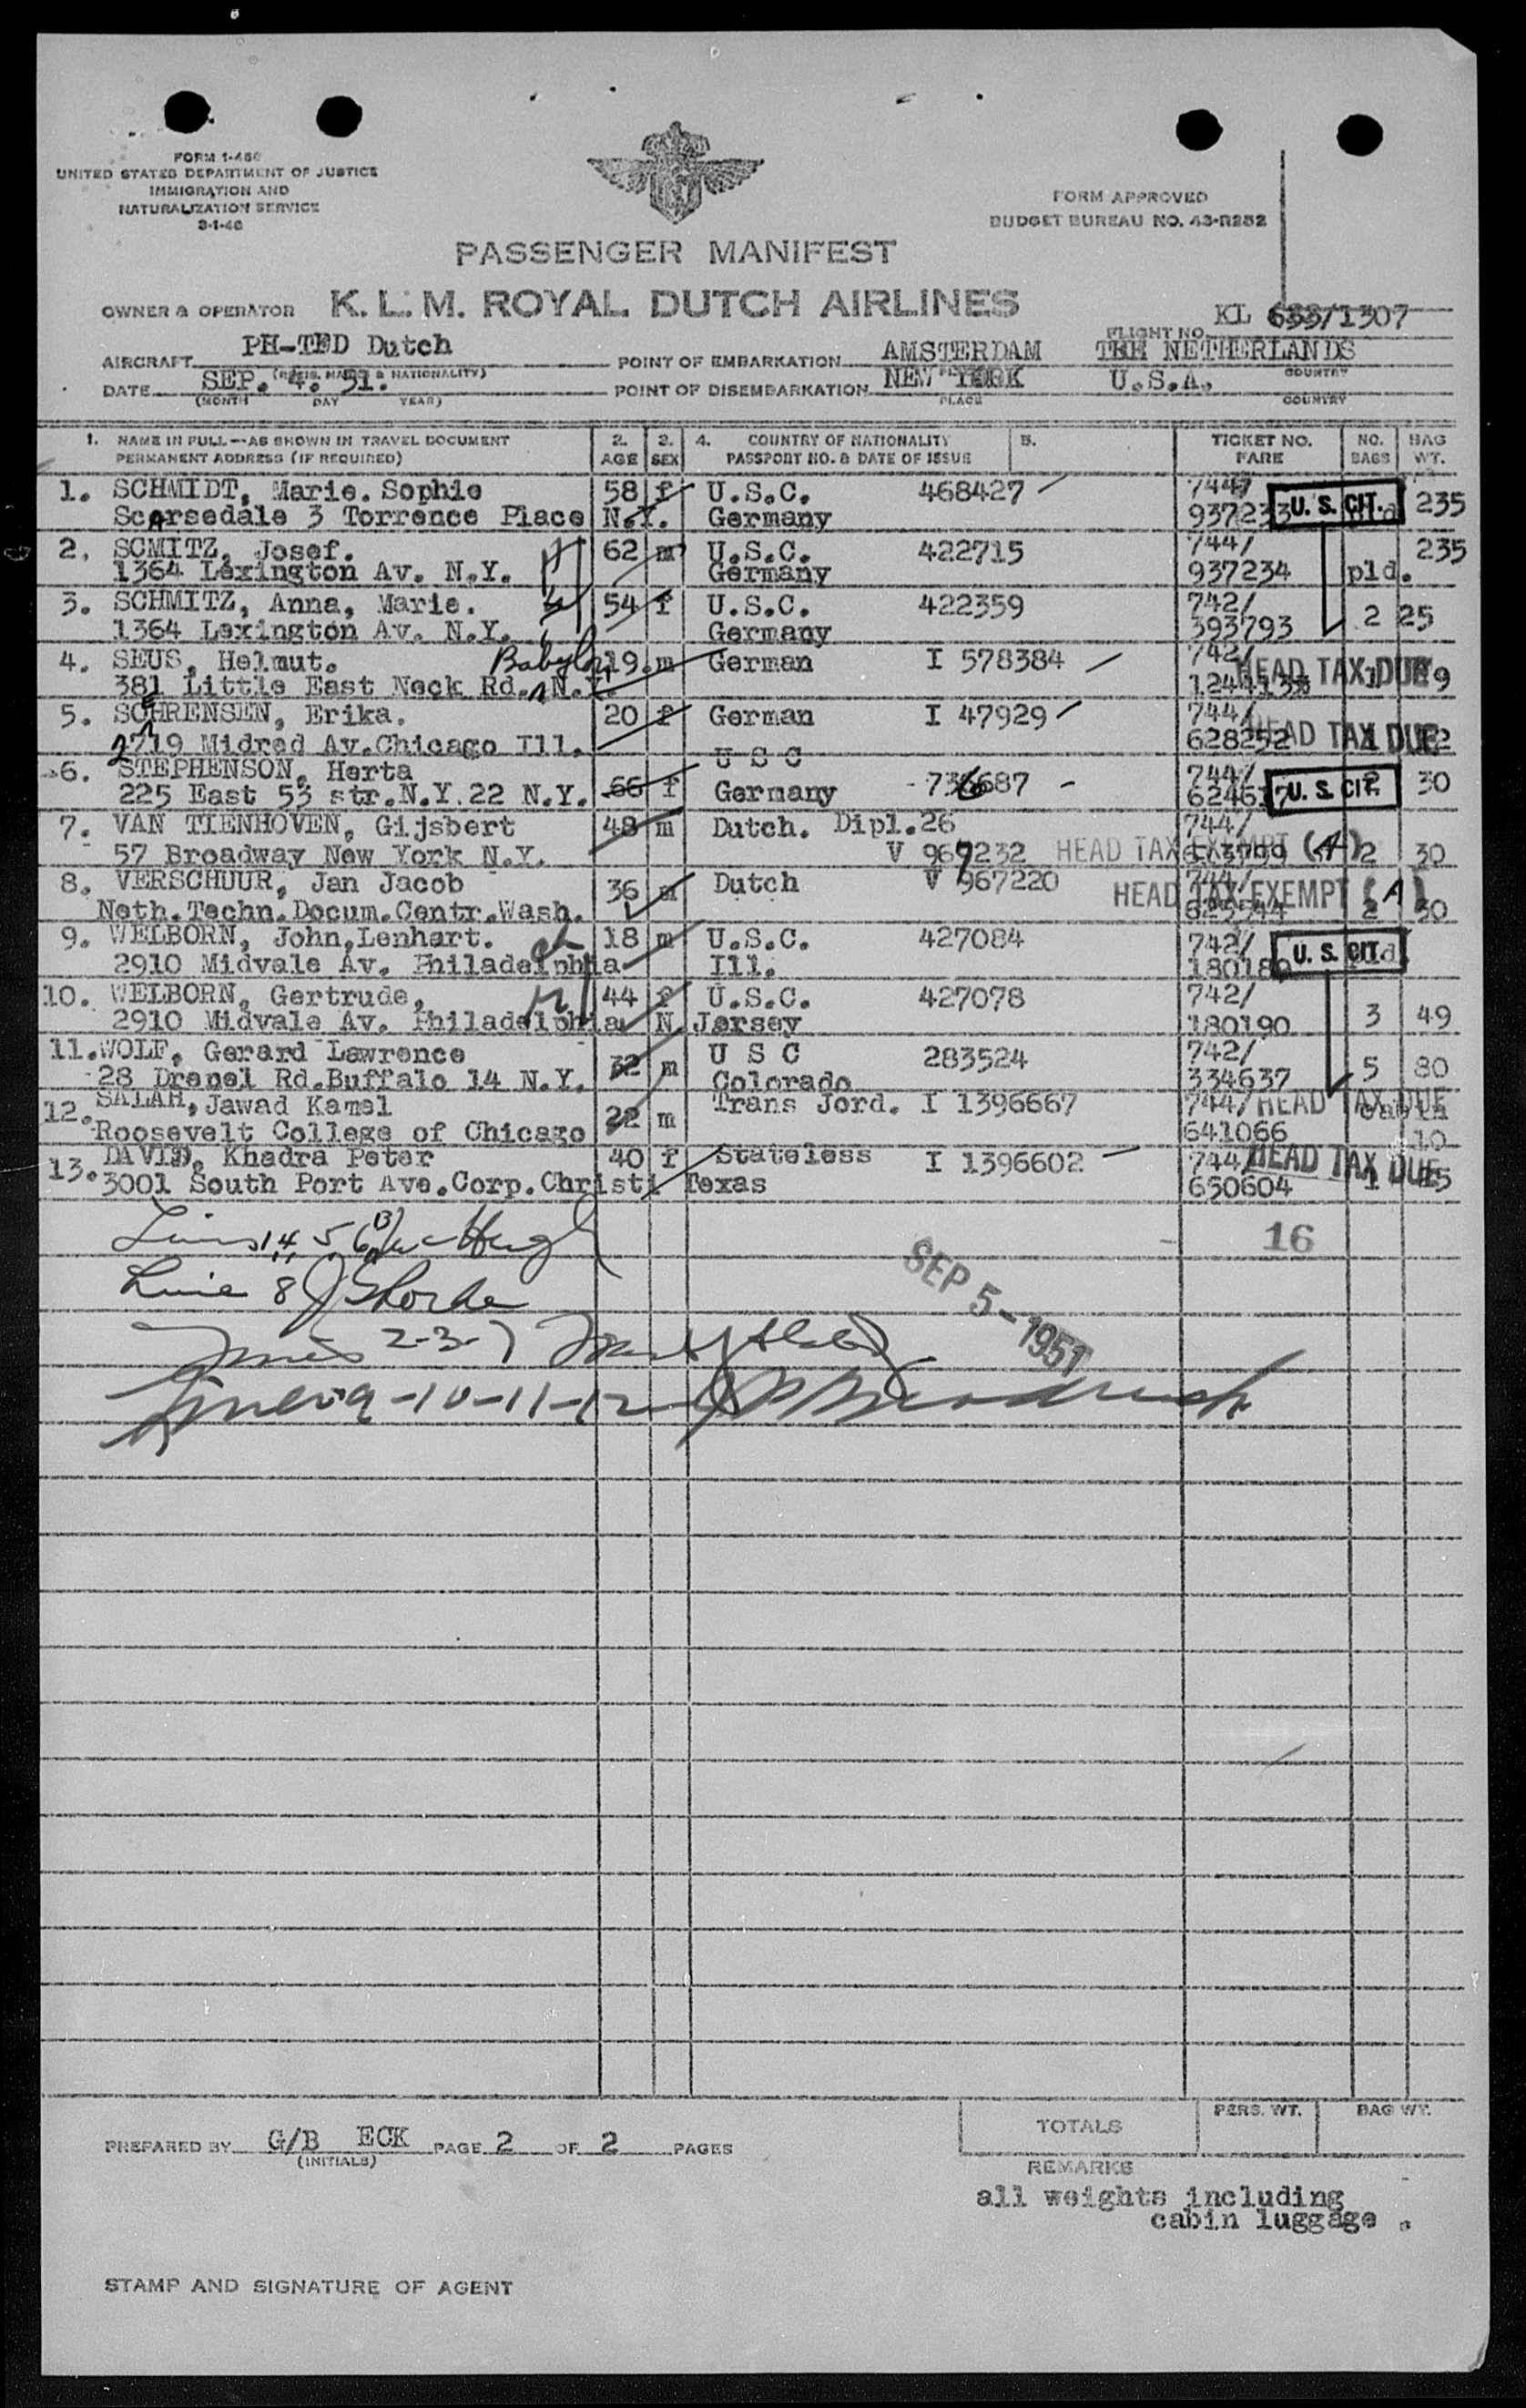 FORM 1-466
UNITED STATES DEPARTMENT OF JUSTICE
IMMIGRATION AND
NATURALIZATION SERVICE
3-1-46
FORM APPROVED
BUDGET BUREAU NO. 43-R252
PASSENGER MANIFEST
OWNER & OPERATOR K.L.M. ROYAL DUTCH AIRLINES
KL 633/1307
FLIGHT NO.
AIRCRAFT PH-TED Dutch POINT OF EMBARKATION AMSTERDAM THE NETHERLANDS
(REGIS. MARKS & NATIONALITY) PLACE COUNTRY
DATE SEP. 4. 51. POINT OF DISEMBARKATION NEW YORK U.S.A.
(MONTH DAY YEAR) PLACE COUNTRY
1. NAME IN FULL—AS SHOWN IN TRAVEL DOCUMENT 2. 3. 4. COUNTRY OF NATIONALITY 5. TICKET NO. NO. BAG
PERMANENT ADDRESS (IF REQUIRED) AGE SEX PASSPORT NO. & DATE OF ISSUE FARE BAGS WT.
1. SCHMIDT, Marie. Sophie 58 f U.S.C. 468427 744/ U.S. CIT. 235
Scarsedale 3 Torrence Place N.Y. Germany 937233
2. SCMITZ, Josef. 62 m U.S.C. 422715 744/ 235
1364 Lexington Av. N.Y. Germany 937234 pld.
3. SCHMITZ, Anna, Marie. 54 f U.S.C. 422359 742/ 2 25
1364 Lexington Av. N.Y. Germany 393793
4. SEUS, Helmut. Babylon 19. m German I 578384 742/ HEAD TAX DUE
381 Little East Neck Rd. N.Y.
5. SOHRENSEN, Erika. 20 f German I 47929 744/ HEAD TAX DUE
2719 Midred Av. Chicago Ill. 628252
6. STEPHENSON, Herta 66 f U S C 736687 744/ U.S. CIT. 30
225 East 53 str. N.Y. 22 N.Y. Germany
7. VAN TIENHOVEN, Gijsbert 48 m Dutch. Dipl. 26 744/
57 Broadway New York N.Y. V 967232 HEAD TAX EXEMPT (A) 2 30
8. VERSCHUUR, Jan Jacob 36 m Dutch V 967220 744/ HEAD TAX EXEMPT (A)
Neth. Techn. Docum. Centr. Wash. 625544 2 30
9. WELBORN, John, Lenhart. 18 m U.S.C. 427084 742/ U.S. CIT.
2910 Midvale Av. Philadelphia Ill.
10. WELBORN, Gertrude, 44 f U.S.C. 427078 742/ 3 49
2910 Midvale Av. Philadelphia N. Jersey 180190
11. WOLF, Gerard Lawrence 32 m U S C 283524 742/ 5 80
28 Drexel Rd. Buffalo 14 N.Y. Colorado 334637
12. SALAH, Jawad Kamel 22 m Trans Jord. I 1396667 744/ HEAD TAX DUE
Roosevelt College of Chicago 641066 10
13. DAVID, Khadra Peter 40 f Stateless I 1396602 744/ HEAD TAX DUE
3001 South Port Ave. Corp. Christi Texas 650604 1
16
SEP 5-1951
Line 8
2-3-7
9-10-11-12
TOTALS PERS. WT. BAG WT.
PREPARED BY G/B ECK PAGE 2 OF 2 PAGES
(INITIALS)
REMARKS
all weights including
cabin luggage .
STAMP AND SIGNATURE OF AGENT